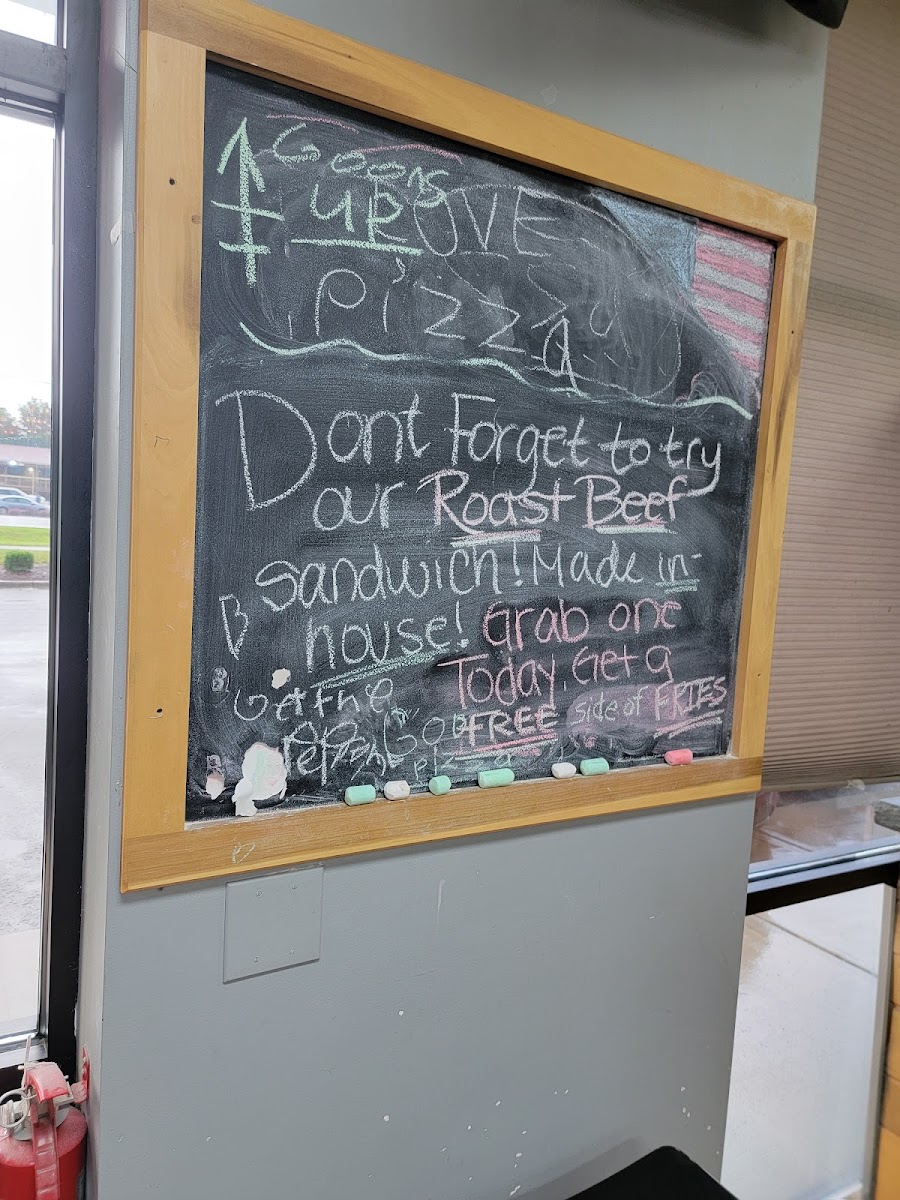 Goons
UP OVE
Pizza
Dont Forget to try
our Roast Beef
Sandwich! Made in-
house! Grab one
Today, Get a
Get the
FREE side of FRIES